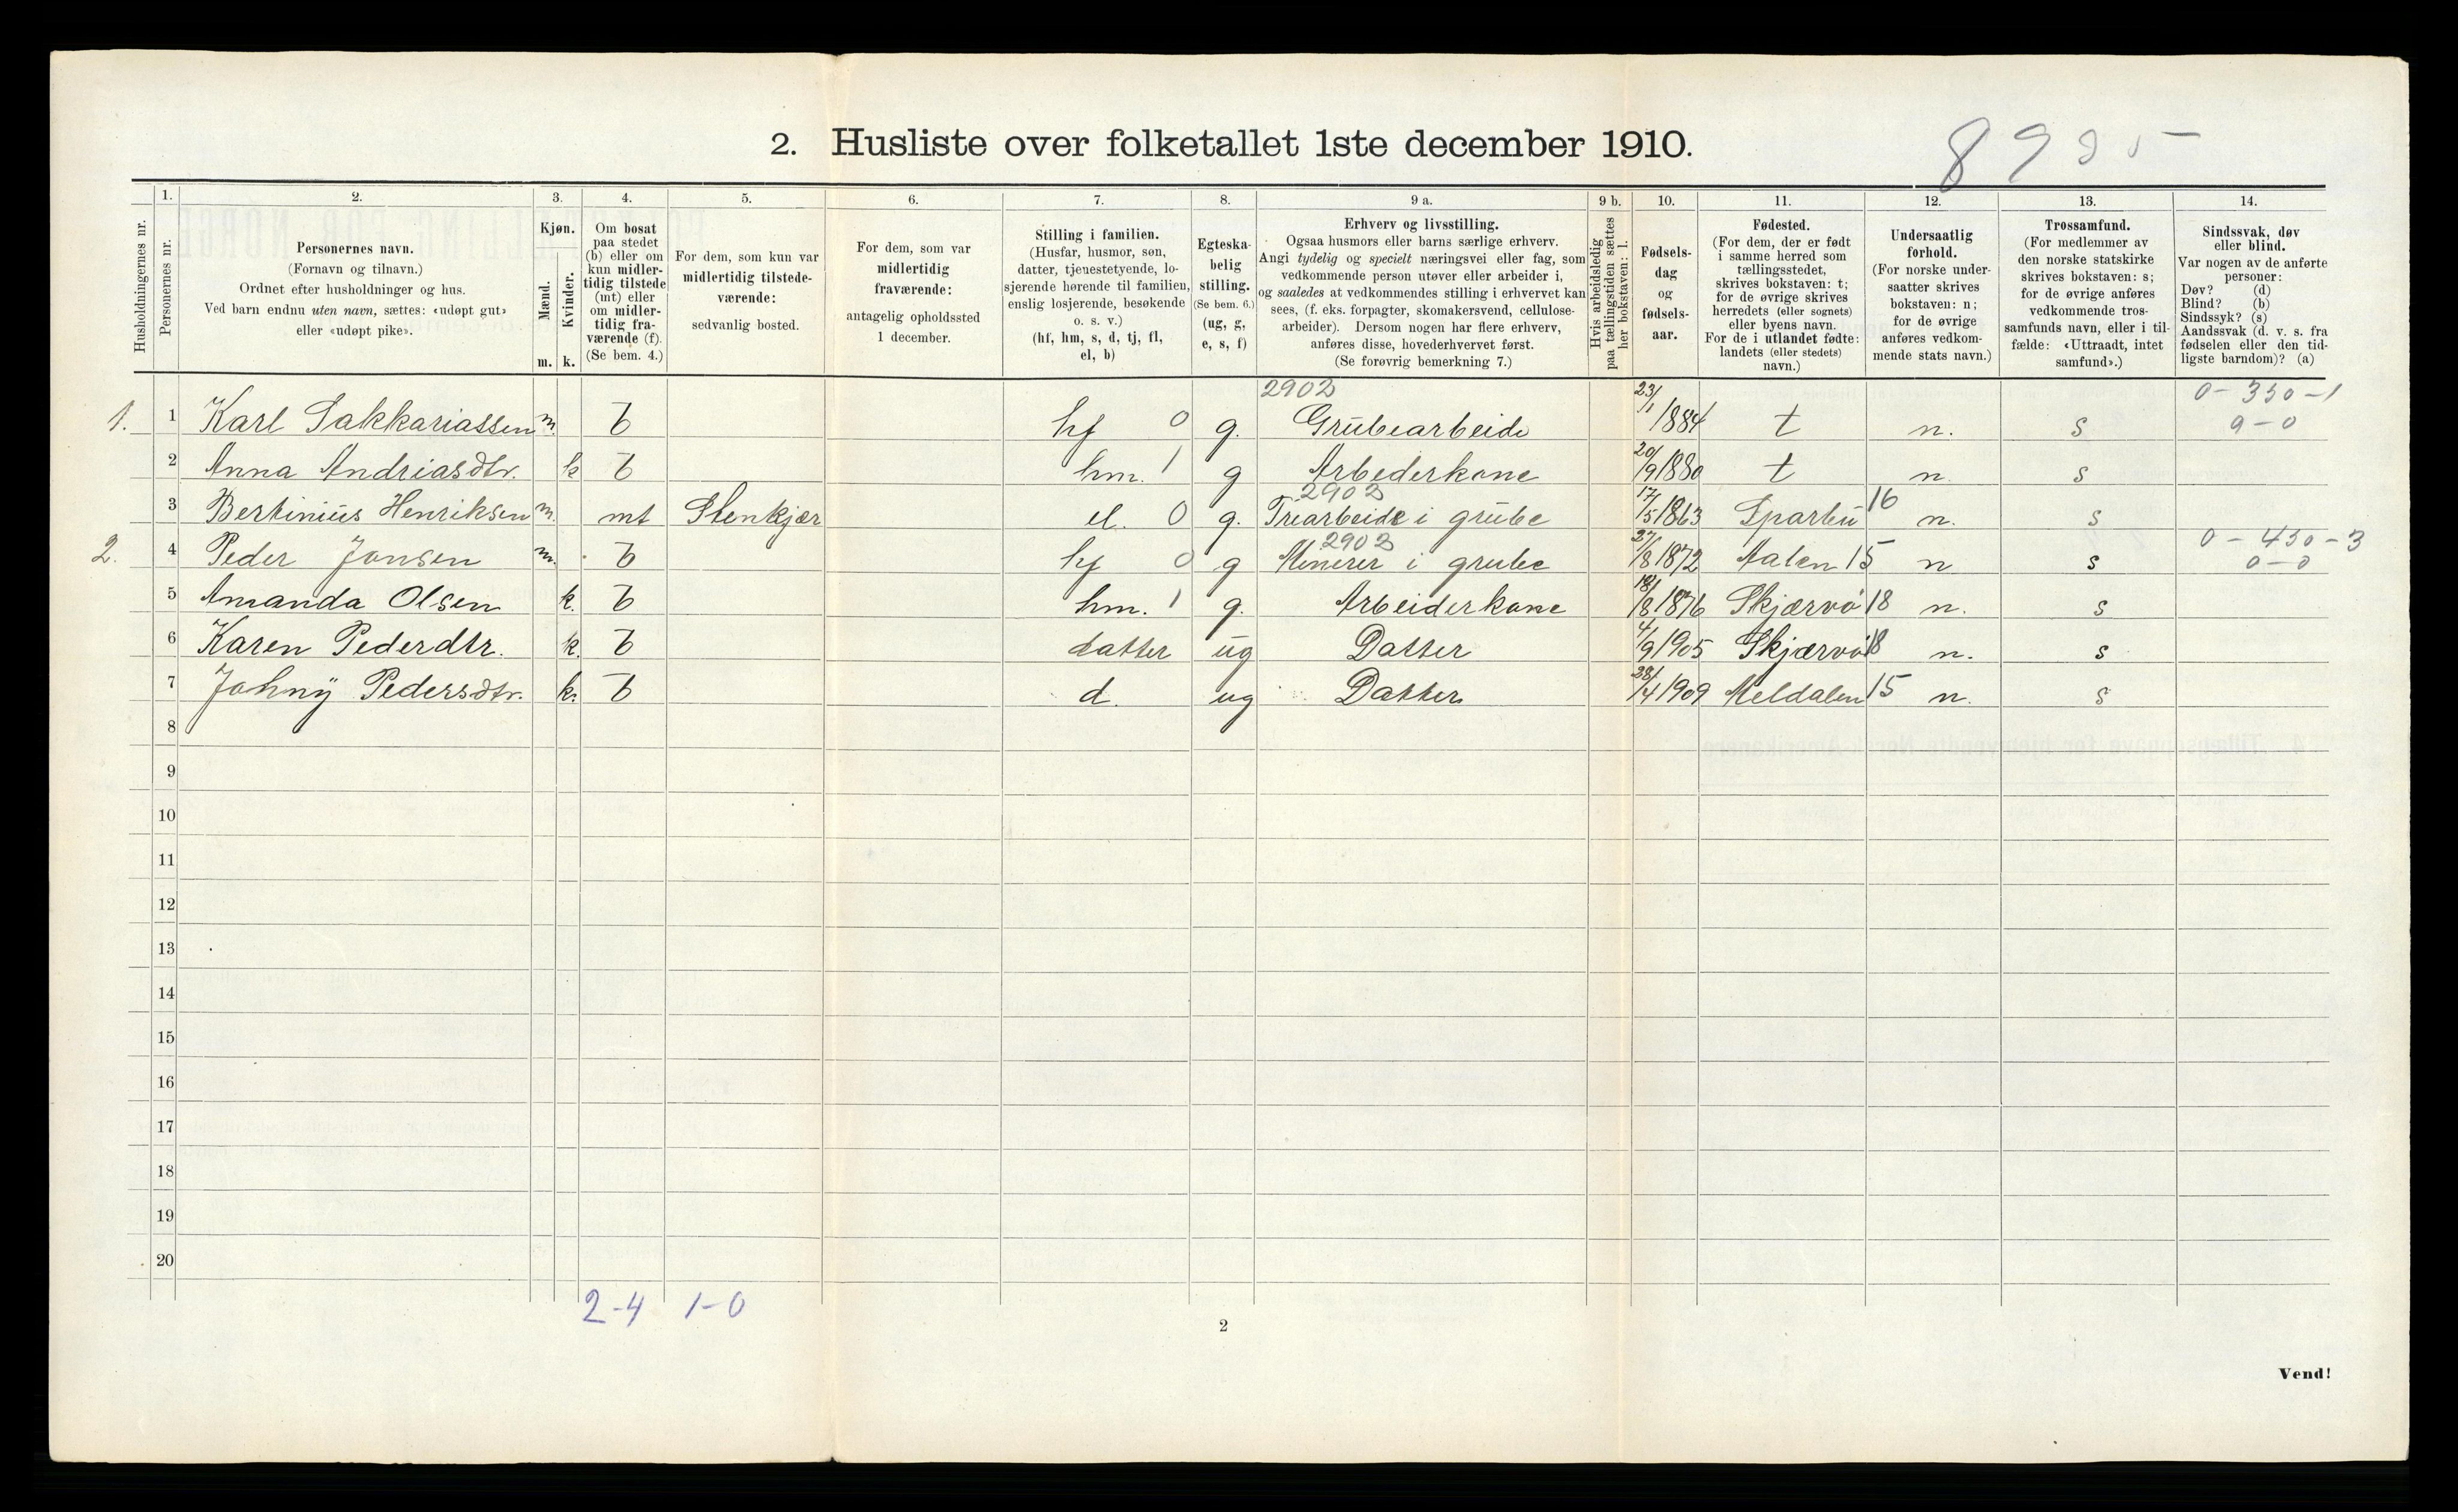 2. Husliste over folketallet 1ste december 1910.
Husholdningernes nr.
1. Personernes nr.
2. Personernes navn. (Fornavn og tilnavn.) Ordnet efter husholdninger og hus. Ved barn endnu uten navn, sættes: «udøpt gut» eller «udøpt pike».
3. Kjøn. Mænd. m. Kvinder. k.
4. Om bosat paa stedet (b) eller om kun midlertidig tilstede (mt) eller om midlertidig fraværende (f). (Se bem. 4.)
5. For dem, som kun var midlertidig tilstedeværende: sedvanlig bosted.
6. For dem, som var midlertidig fraværende: antagelig opholdssted 1 december.
7. Stilling i familien. (Husfar, husmor, søn, datter, tjenestetyende, losjerende hørende til familien, enslig losjerende, besøkende o. s. v.) (hf, hm, s, d, tj, fl, el, b)
8. Egteskabelig stilling. (Se bem. 6.) (ug, g, e, s, f)
9 a. Erhverv og livsstilling. Ogsaa husmors eller barns særlige erhverv. Angi tydelig og specielt næringsvei eller fag, som vedkommende person utøver eller arbeider i, og saaledes at vedkommendes stilling i erhvervet kan sees, (f. eks. forpagter, skomakersvend, cellulosearbeider). Dersom nogen har flere erhverv, anføres disse, hovederhvervet først. (Se forøvrig bemerkning 7.)
9 b. Hvis arbeidsledig paa tællingstiden sættes her bokstaven: l.
10. Fødselsdag og fødselsaar.
11. Fødested. (For dem, der er født i samme herred som tællingsstedet, skrives bokstaven: t; for de øvrige skrives herredets (eller sognets) eller byens navn. For de i utlandet fødte: landets (eller stedets) navn.)
12. Undersaatlig forhold. (For norske undersaatter skrives bokstaven: n; for de øvrige anføres vedkommende stats navn.)
13. Trossamfund. (For medlemmer av den norske statskirke skrives bokstaven: s; for de øvrige anføres vedkommende trossamfunds navn, eller i tilfælde: «Uttraadt, intet samfund».)
14. Sindssvak, døv eller blind. Var nogen av de anførte personer: Døv? (d) Blind? (b) Sindssyk? (s) Aandssvak (d. v. s. fra fødselen eller den tidligste barndom)? (a)
1. 1 Karl Sakkariassen m. b hf 0 g. 2902 Grubearbeide 23/1 1884 t n. s 0-350-1
2 Anna Andriasdtr. k b hm. 1 g Arbederkone 20/9 1880 t n. s
3 Bertinius Henriksen m. mt Stenkjær el. 0 g. 2902 Træarbeide i grube 17/5 1863 Sparbu 16 n. s
2. 4 Peder Jansen m. b hf 0 g 2902 Minerer i grube 27/8 1872 Aalen 15 n s 0-450-3 0-0
5 Amanda Olsen k. b hm. 1 g. Arbeiderkone /8 1876 Skjærvö 18 n. s
6 Karen Pederdtr. k. b datter ug Datter 4/9 1905 Skjærvö 18 n. s
7 Johny Pedersdtr. k. b d. ug Datter 28/4 1909 Meldalen 15 n. s
8
9
10
11
12
13
14
15
16
17
18
19
20
2-4 1-0
2
Vend!